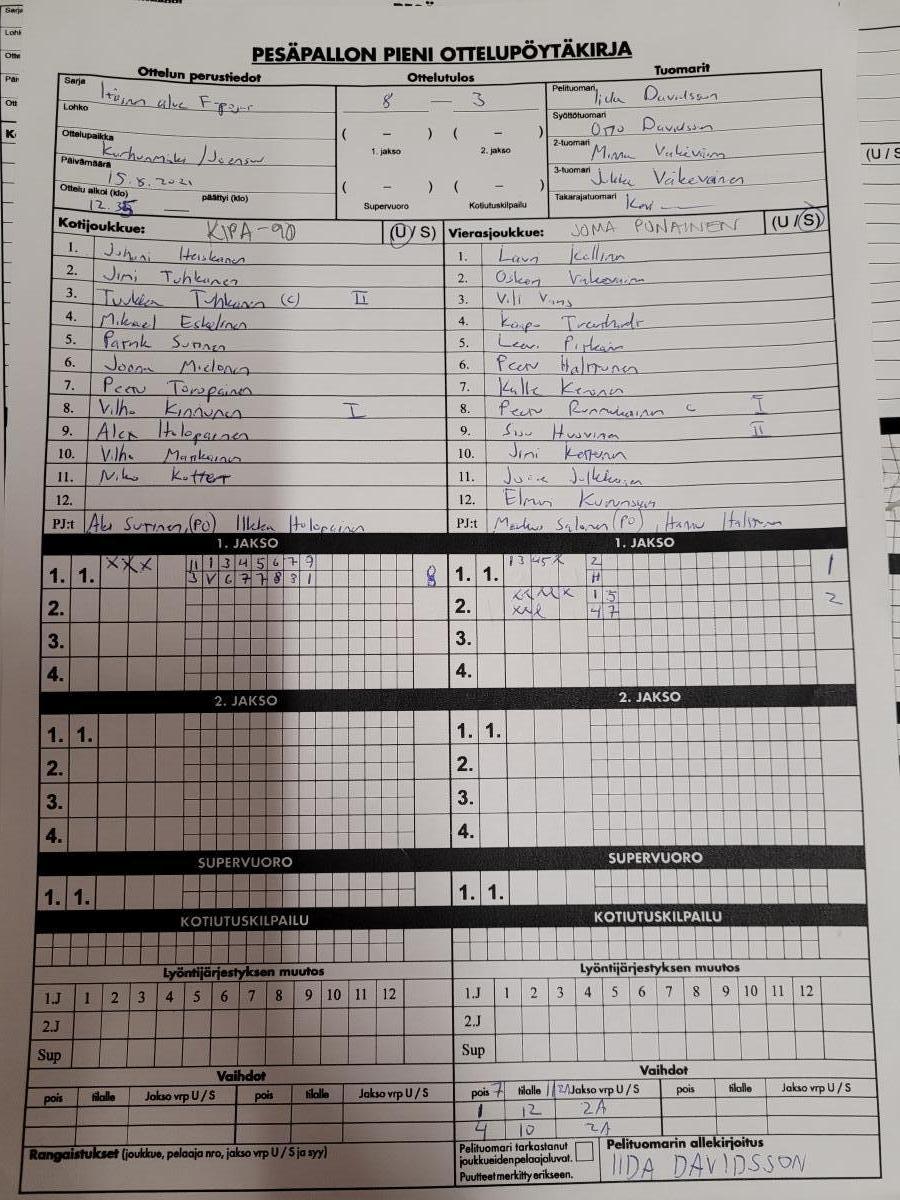 PESÄPALLON PIENI OTTELUPÖYTÄKIRJA
Ottelun perustiedot
Ottelutulos
Tuomarit
Sarja
Lohko
Ottelupaikka
Joensuu
Päivämäärä
15.8.2021
Ottelu alkoi (klo) päättyi (klo)
12.35
8 — 3
( – ) ( – )
1. jakso 2. jakso
( – ) ( – )
Supervuoro Kotiutuskilpailu
Pelituomari
Iida Davidsson
Syöttötuomari
Otto Davidsson
2-tuomari
Minna
3-tuomari
Jukka Väkeväinen
Takarajatuomari
Kotijoukkue: KIPA-90 (U / S)
1. Juhani Heiskanen
2. Jimi Tuhkanen
3. Tuukka Tuhkanen (c) II
4. Mikael Eskelinen
5. Patrik Surinen
6. Joona
7. Peetu Toropainen
8. Vilho Kinnunen I
9. Alex Holopainen
10. Vilho Manninen
11. Niko
12.
PJ:t Aki Surinen, (PO) Ilkka Holopainen
Vierasjoukkue: JOMA PUNAINEN (U / S)
1. Kallinen
2. Väkeväinen
3. Vili
4.
5. Pirhonen
6. Peetu Halttunen
7. Kalle Keronen
8. Peetu c I
9. II
10. Jimi
11.
12.
PJ:t Salonen (PO), Hannu
1. JAKSO
1. 1. XXX 11 1 3 4 5 6 7 9 8
3 V 6 7 7 8 9 1
2.
3.
4.
1. JAKSO
1. 1. 1345X 2 1
H
2. 1 5 2
4 7
3.
4.
2. JAKSO
1. 1.
2.
3.
4.
2. JAKSO
1. 1.
2.
3.
4.
SUPERVUORO
1. 1.
SUPERVUORO
1. 1.
KOTIUTUSKILPAILU
KOTIUTUSKILPAILU
Lyöntijärjestyksen muutos
1.J 1 2 3 4 5 6 7 8 9 10 11 12
2.J
Sup
Lyöntijärjestyksen muutos
1.J 1 2 3 4 5 6 7 8 9 10 11 12
2.J
Sup
Vaihdot
pois tilalle Jakso vrp U / S pois tilalle Jakso vrp U / S
Vaihdot
pois 7 tilalle 11 2A Jakso vrp U / S pois tilalle Jakso vrp U / S
1 12 2A
4 10 2A
Rangaistukset (joukkue, pelaaja nro, jakso vrp U / S ja syy)
Pelituomari tarkastanut
joukkueiden pelaajaluvat.
Puutteet merkitty erikseen.
Pelituomarin allekirjoitus
IIDA DAVIDSSON